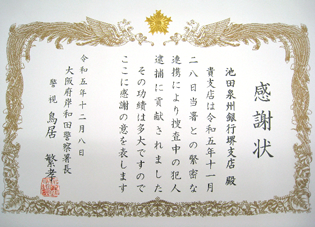 感謝状
池田泉州銀行堺支店 殿
貴支店は令和五年十一月
二八日当署との緊密な
連携により捜査中の犯人
逮捕に貢献されました
その功績は多大ですので
ここに感謝の意を表します
令和五年十二月八日
大阪府岸和田警察署長
警視 鳥居繁孝